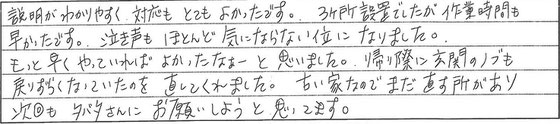 説明がわかりやすく、対応もとてもよかったです。3ヶ所設置でしたが作業時間も
早かったです。泣き声もほとんど気にならない位になりました。
もっと早くやっていればよかったなぁーと思いました。帰り際に玄関のノブも
戻りおそくなっていたのを直してくれました。古い家なのでまだ直す所があり
次回もタバタさんにお願いしようと思ってます。